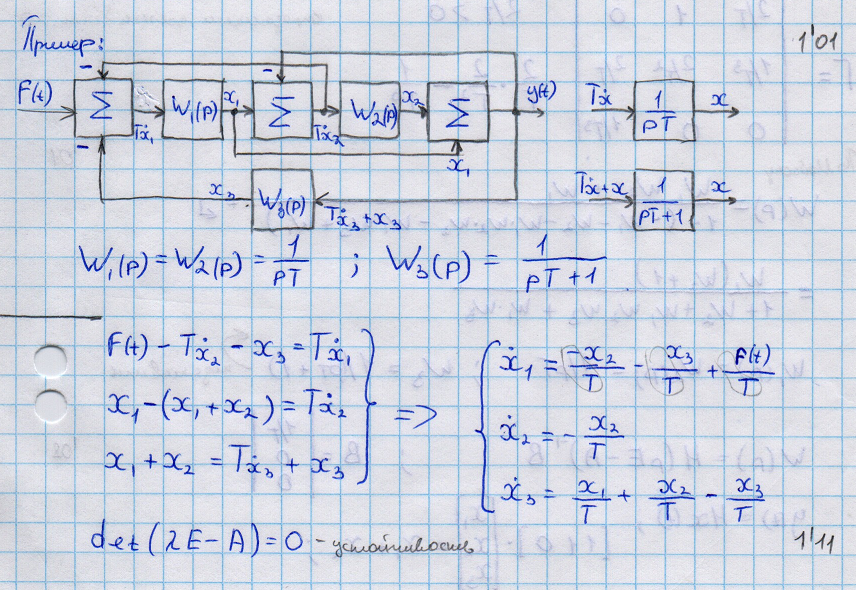 Пример:
1'01
F(t) Σ Tẋ₁ W₁(p) x₁ Σ Tẋ₂ W₂(p) x₂ Σ y(t)
Tẋ 1/pT x
x₁
x₃ W₃(p) Tẋ₃+x₃
Tẋ+x 1/(pT+1) x
W₁(p) = W₂(p) = 1/pT ; W₃(p) = 1/(pT+1)
F(t) − Tẋ₂ − x₃ = Tẋ₁
x₁ − (x₁ + x₂) = Tẋ₂
x₁ + x₂ = Tẋ₃ + x₃
=>
ẋ₁ = −x₂/T − x₃/T + F(t)/T
ẋ₂ = − x₂/T
ẋ₃ = x₁/T + x₂/T − x₃/T
det(λE − A) = 0 – устойчивость
1'11